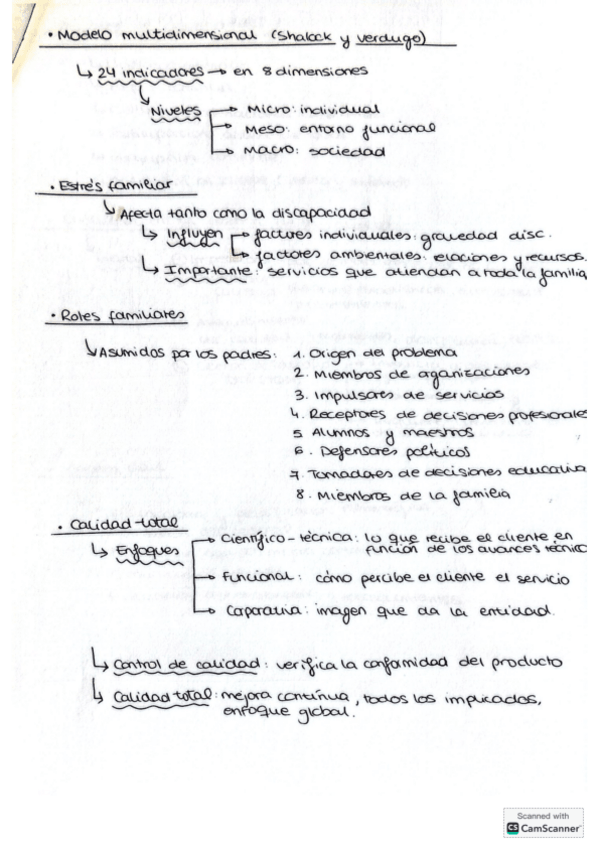 • Modelo multidimensional (Shalock y Verdugo)
↳ 24 indicadores → en 8 dimensiones
Niveles → Micro: individual
→ Meso: entorno funcional
→ Macro: sociedad
• Estrés familiar
↳ Afecta tanto como la discapacidad
↳ Influyen → factores individuales: gravedad disc.
→ factores ambientales: relaciones y recursos.
↳ Importante: servicios que atiendan a toda la familia
• Roles familiares
↳ Asumidos por los padres: 1. Origen del problema
2. Miembros de organizaciones
3. Impulsores de servicios
4. Receptores de decisiones profesionales
5 Alumnos y maestros
6. Defensores políticos
7. Tomadores de decisiones educativa
8. Miembros de la familia
• Calidad total
↳ Enfoques → Científico-técnica: lo que recibe el cliente en
función de los avances técnic
→ Funcional: cómo percibe el cliente el servicio
→ Corporativa: imagen que da la entidad.
↳ Control de calidad: verifica la conformidad del producto
↳ Calidad total: mejora contínua, todos los implicados,
enfoque global.
Scanned with
CS CamScanner